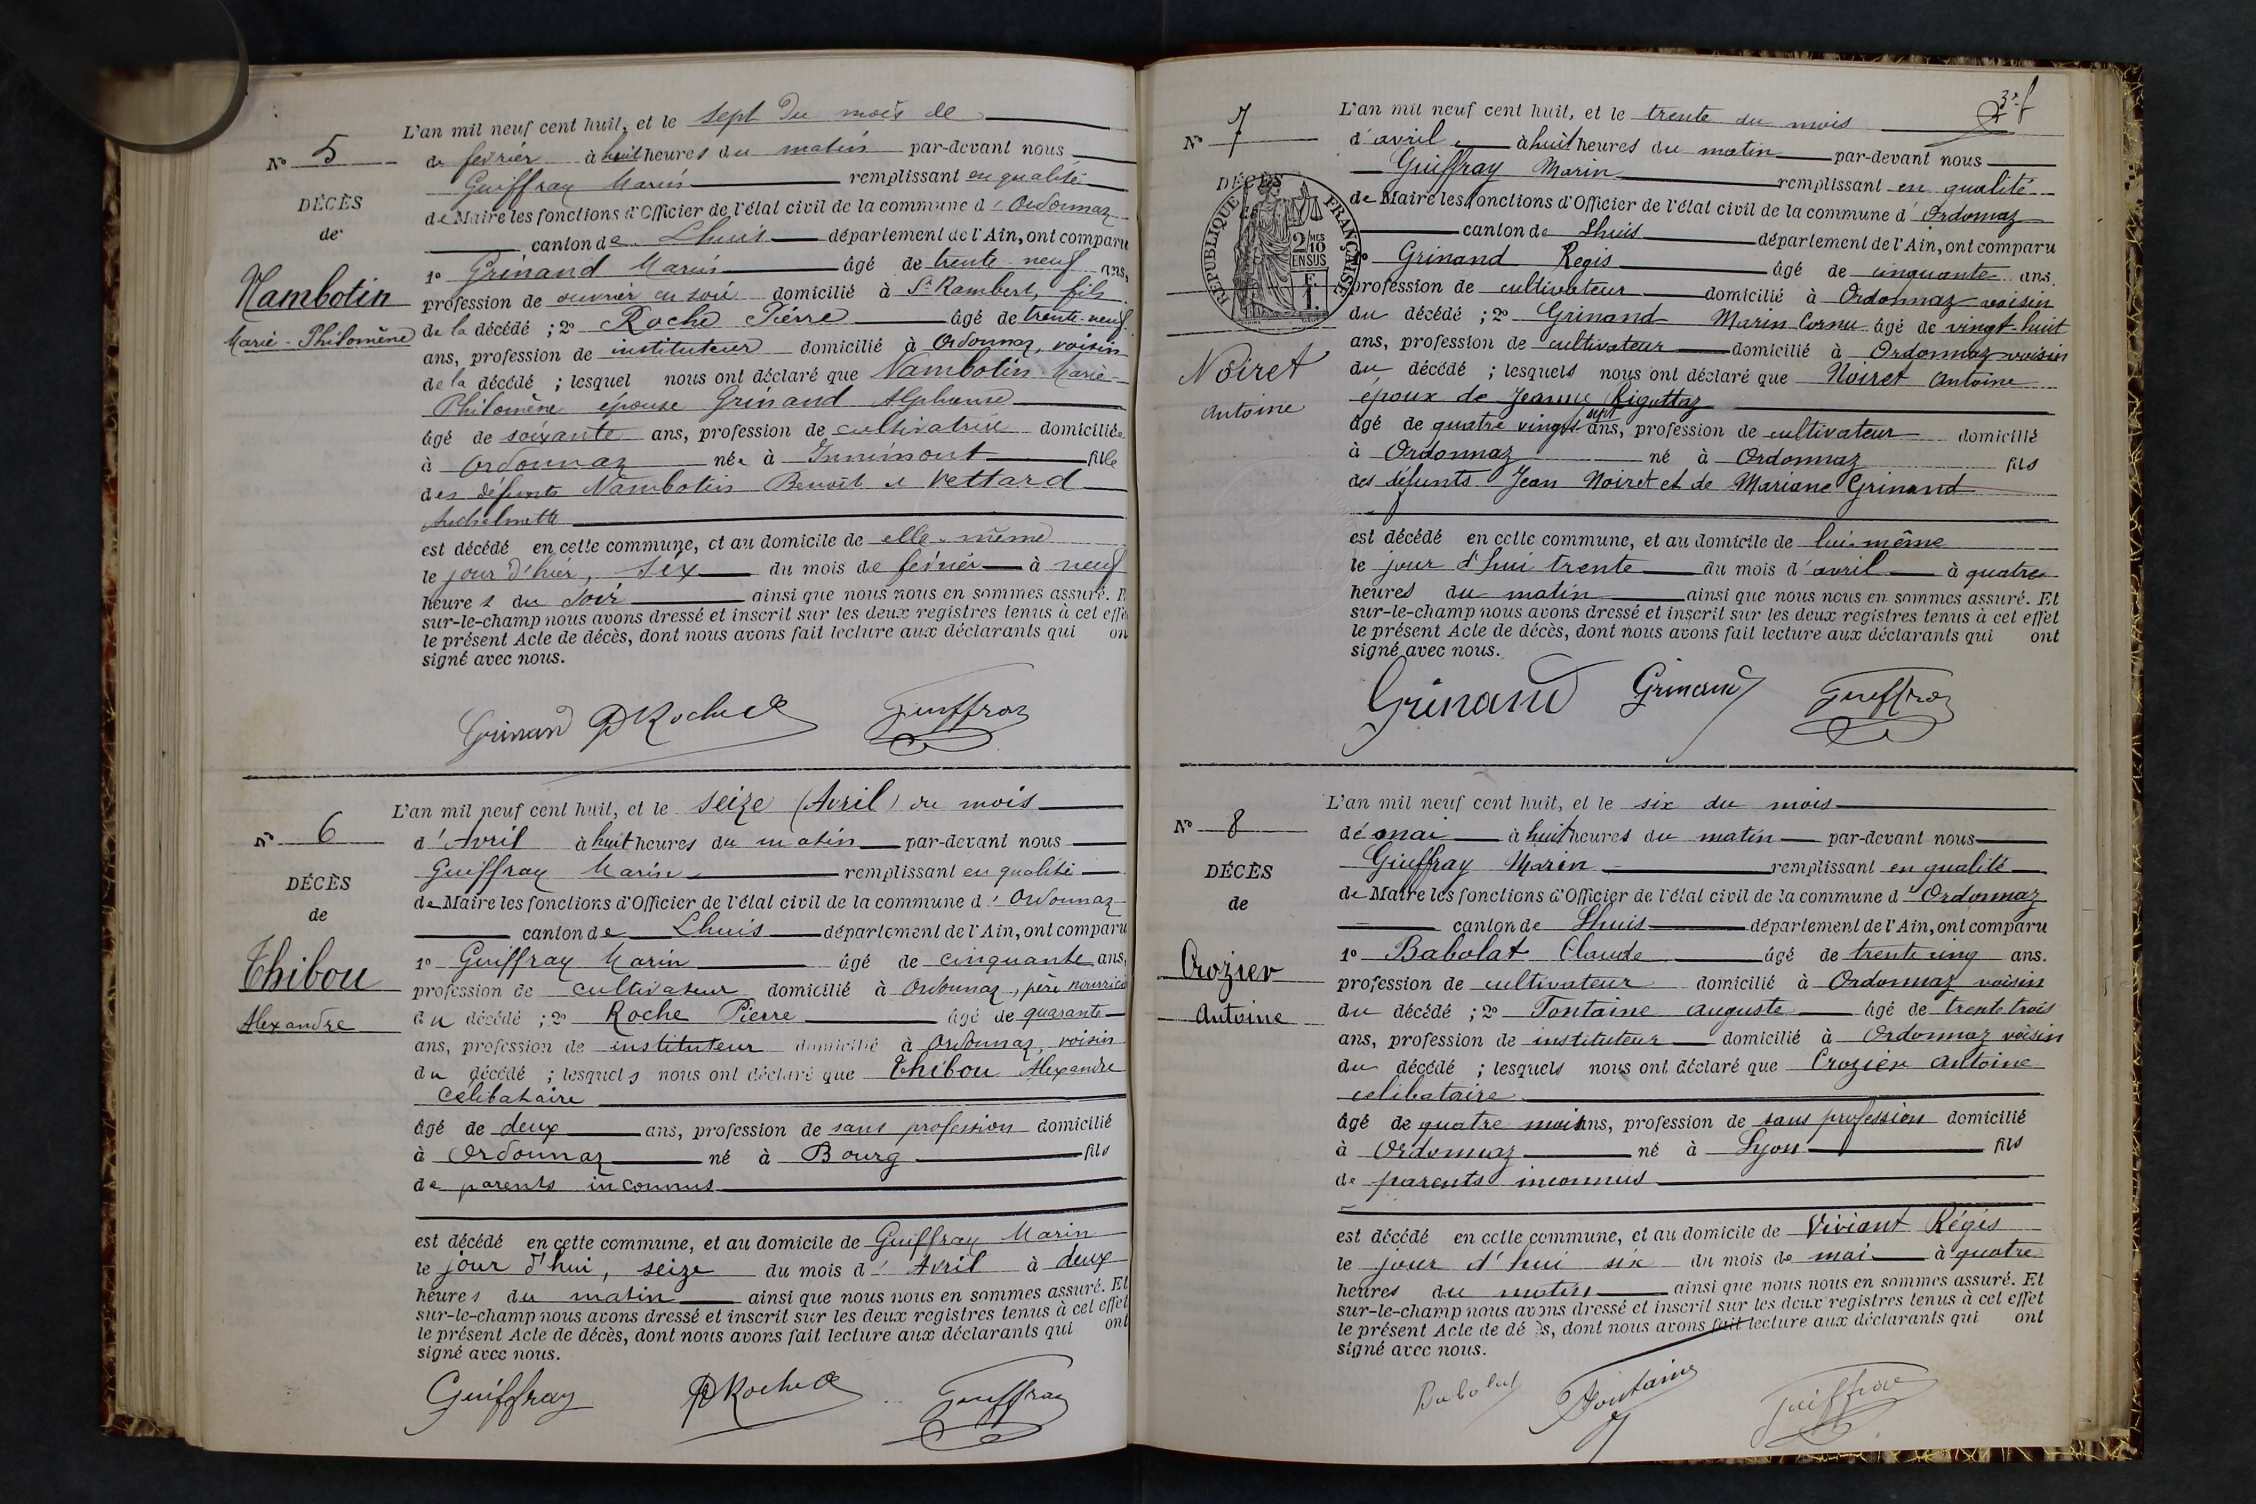 L'an mil neuf cent huit, et le sept du mois de
N° 5 de février à huit heures du matin par-devant nous
Guiffray Marin remplissant en qualité
DÉCÈS
de Maire les fonctions d'Officier de l'état civil de la commune d'Ordonnaz
de
canton de Lhuis département de l'Ain, ont comparu
1° Grinand Marin âgé de trente neuf ans,
Nambotin
profession de ouvrier en soie domicilié à St Rambert, fils
Marie-Philomène
de la décédé ; 2° Roche Pierre âgé de trente-neuf
ans, profession de instituteur domicilié à Ordonnaz, voisin
de la décédé ; lesquel nous ont déclaré que Nambotin Marie-
Philomène épouse Grinand Alphonse
âgé de soixante ans, profession de cultivatrice domiciliée
à Ordonnaz née à Innimont fille
des défunts Nambotin Benoît et Vettard
est décédé en cette commune, et au domicile de elle-même
le jour d'hier, six du mois de février à neuf
heures du soir ainsi que nous nous en sommes assuré. E
sur-le-champ nous avons dressé et inscrit sur les deux registres tenus à cet effe
le présent Acte de décès, dont nous avons fait lecture aux déclarants qui on
signé avec nous.
Grinand PRoche Guiffray
L'an mil neuf cent huit, et le seize (Avril) du mois
N° 6
d'Avril à huit heures du matin par-devant nous
Guiffray Marin remplissant en qualité
DÉCÈS
de Maire les fonctions d'Officier de l'état civil de la commune d'Ordonnaz
de
canton de Lhuis département de l'Ain, ont comparu
1° Guiffray Marin âgé de cinquante ans,
Thibou
profession de cultivateur domicilié à Ordonnaz, père nourricier
Alexandre
du décédé ; 2° Roche Pierre âgé de quarante
ans, profession de instituteur domicilié à Ordonnaz, voisin
du décédé ; lesquels nous ont déclaré que Thibou Alexandre
Célibataire
âgé de deux ans, profession de sans profession domicilié
à Ordonnaz né à Bourg fils
de parents inconnus
est décédé en cette commune, et au domicile de Guiffray Marin
le jour d'hui, seize du mois d'Avril à deux
heures du matin ainsi que nous nous en sommes assuré. Et
sur-le-champ nous avons dressé et inscrit sur les deux registres tenus à cet effet
le présent Acte de décès, dont nous avons fait lecture aux déclarants qui ont
signé avec nous.
Guiffray PRoche Guiffray
L'an mil neuf cent huit, et le trente du mois
N° 7
d'avril à huit heures du matin par-devant nous
Guiffray Marin remplissant en qualité
DÉCÈS
RÉPUBLIQUE FRANÇAISE
2/10 MES EN SUS
F. 1.
de Maire les fonctions d'Officier de l'état civil de la commune d'Ordonnaz
canton de Lhuis département de l'Ain, ont comparu
1° Grinand Regis âgé de cinquante ans.
profession de cultivateur domicilié à Ordonnaz voisin
du décédé ; 2° Grinand Marin Cornu âgé de vingt-huit
ans, profession de cultivateur domicilié à Ordonnaz voisin
Noiret
Antoine
du décédé ; lesquels nous ont déclaré que Noiret Antoine
époux de Jeanne Rigottaz
âgé de quatre vingt sept ans, profession de cultivateur domicilié
à Ordonnaz né à Ordonnaz fils
des défunts Jean Noiret et de Mariane Grinand
est décédé en cette commune, et au domicile de lui-même
le jour d'hui trente du mois d'avril à quatre
heures du matin ainsi que nous nous en sommes assuré. Et
sur-le-champ nous avons dressé et inscrit sur les deux registres tenus à cet effet
le présent Acte de décès, dont nous avons fait lecture aux déclarants qui ont
signé avec nous.
Grinand Grinand Guiffray
L'an mil neuf cent huit, et le six du mois
N° 8
de mai à huit heures du matin par-devant nous
Guiffray Marin remplissant en qualité
DÉCÈS
de Maire les fonctions d'Officier de l'état civil de la commune d'Ordonnaz
de
canton de Lhuis département de l'Ain, ont comparu
1° Babolat Claude âgé de trente cinq ans.
Crozier
profession de cultivateur domicilié à Ordonnaz voisin
Antoine
du décédé ; 2° Fontaine Auguste âgé de trente trois
ans, profession de instituteur domicilié à Ordonnaz voisin
du décédé ; lesquels nous ont déclaré que Crozier Antoine
celibataire
âgé de quatre mois ans, profession de sans profession domicilié
à Ordonnaz né à Lyon fils
de parents inconnus
est décédé en cette commune, et au domicile de Viviant Régis
le jour d'hui six du mois de mai à quatre
heures du matin ainsi que nous nous en sommes assuré. Et
sur-le-champ nous avons dressé et inscrit sur les deux registres tenus à cet effet
le présent Acte de dé s, dont nous avons fait lecture aux déclarants qui ont
signé avec nous.
Babolat Fontaine Guiffray